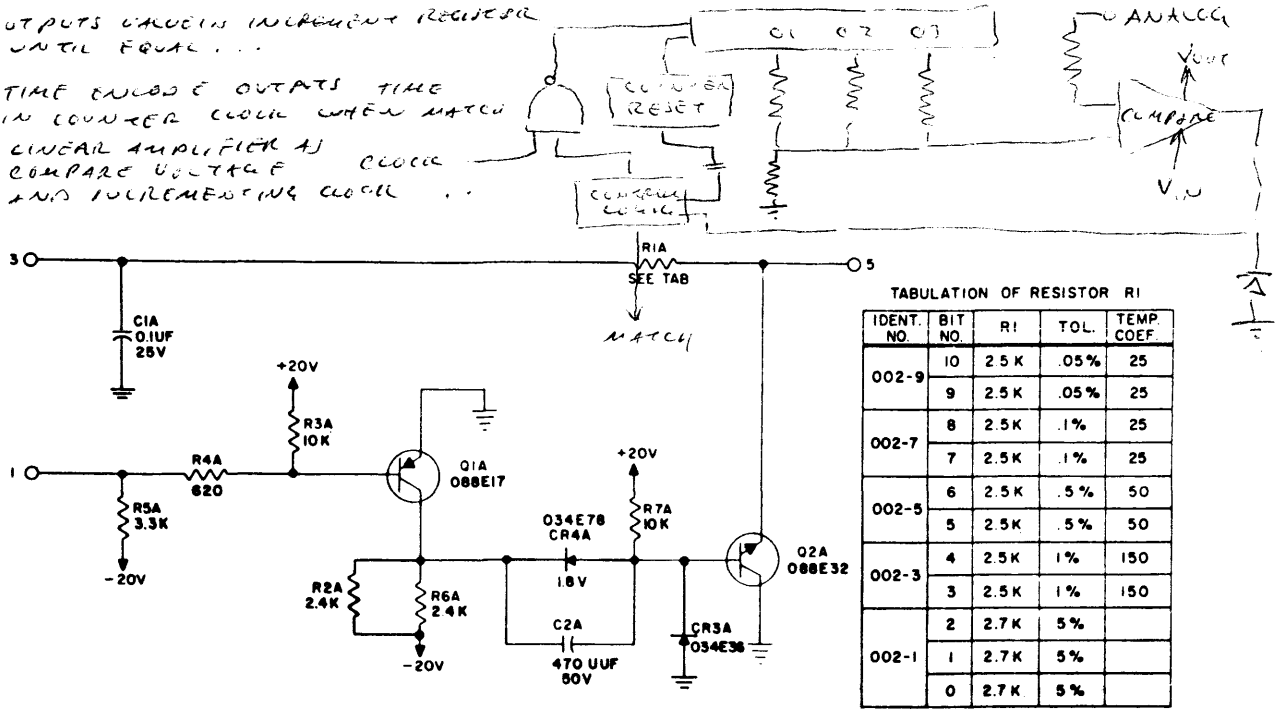 UTPUTS VALUE IN INCREMENT REGISTER
UNTIL EQUAL ...
TIME ENCODE OUTPUTS TIME
IN COUNTER CLOCK WHEN MATCH
LINEAR AMPLIFIER AS
COMPARE VOLTAGE
AND INCREMENTING CLOCK ..
CLOCK
01 02 03
COUNTER
RESET
CONTROL
LOGIC
MATCH
ANALOG
VOUT
COMPARE
VIN
3
R1A
SEE TAB
5
C1A
0.1UF
25V
+20V
R3A
10K
1
R4A
620
R5A
3.3K
-20V
Q1A
088E17
R2A
2.4K
R6A
2.4K
-20V
034E78
CR4A
1.8V
C2A
470 UUF
50V
+20V
R7A
10K
CR3A
034E36
Q2A
088E32
TABULATION OF RESISTOR R1
IDENT. NO. BIT NO. R1 TOL. TEMP. COEF.
002-9 10 2.5K .05% 25
9 2.5K .05% 25
002-7 8 2.5K .1% 25
7 2.5K .1% 25
002-5 6 2.5K .5% 50
5 2.5K .5% 50
002-3 4 2.5K 1% 150
3 2.5K 1% 150
002-1 2 2.7K 5%
1 2.7K 5%
0 2.7K 5%